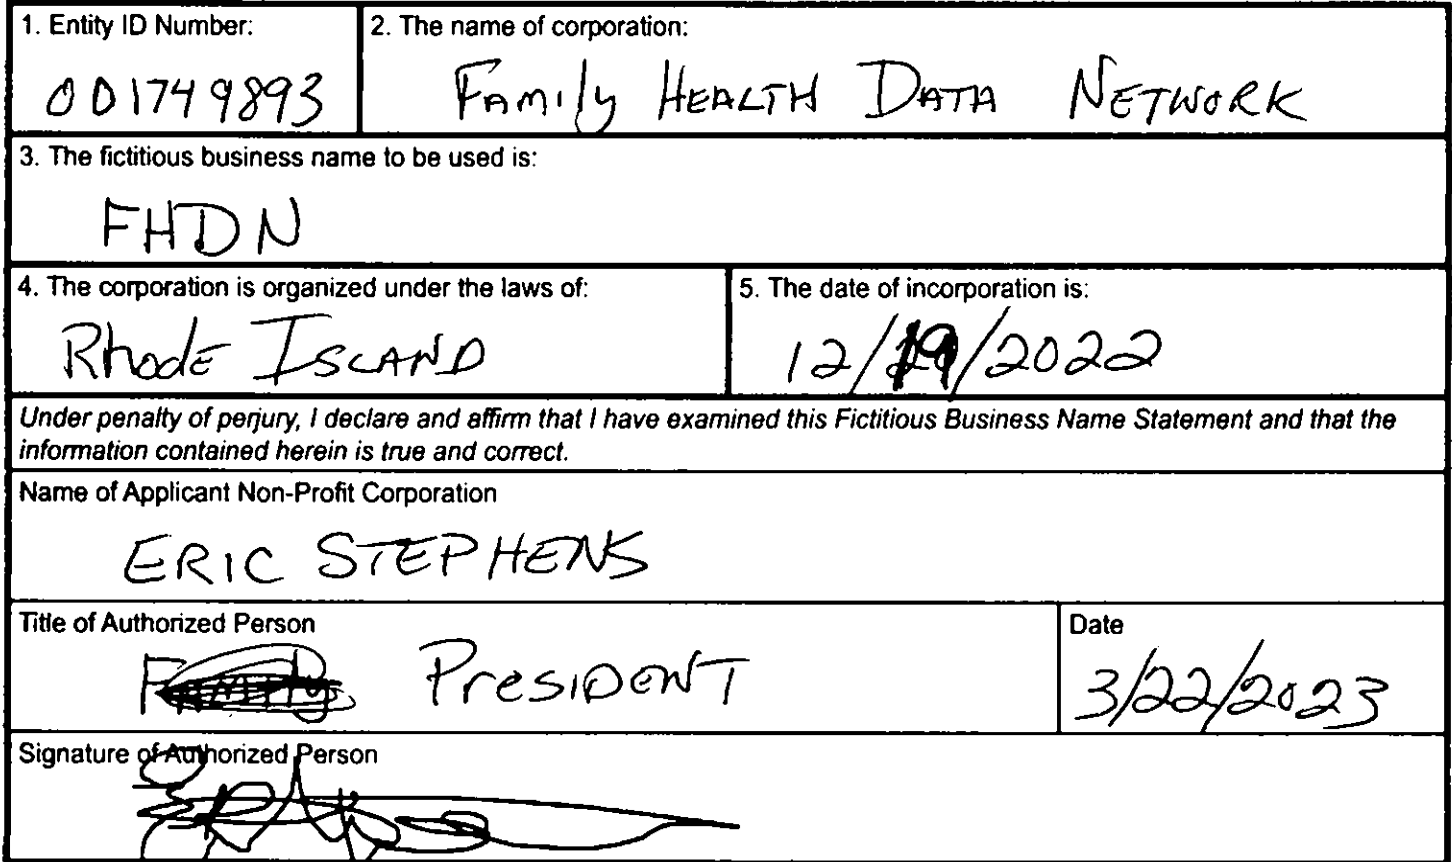 1. Entity ID Number:
001749893
2. The name of corporation:
Family HEALTH DATA NETWORK
3. The fictitious business name to be used is:
FHDN
4. The corporation is organized under the laws of:
RhodE ISLAND
5. The date of incorporation is:
12/19/2022
Under penalty of perjury, I declare and affirm that I have examined this Fictitious Business Name Statement and that the
information contained herein is true and correct.
Name of Applicant Non-Profit Corporation
ERIC STEPHENS
Title of Authorized Person
PresIDENT
Date
3/22/2023
Signature of Authorized Person